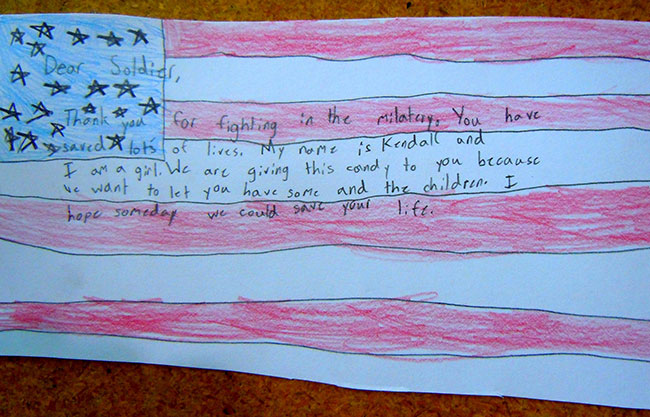 Dear Soldier,
Thank you for fighting in the milatery. You have
saved lots of lives. My name is Kendall and
I am a girl. We are giving this candy to you because
we want to let you have some and the children. I
hope someday we could save your life.